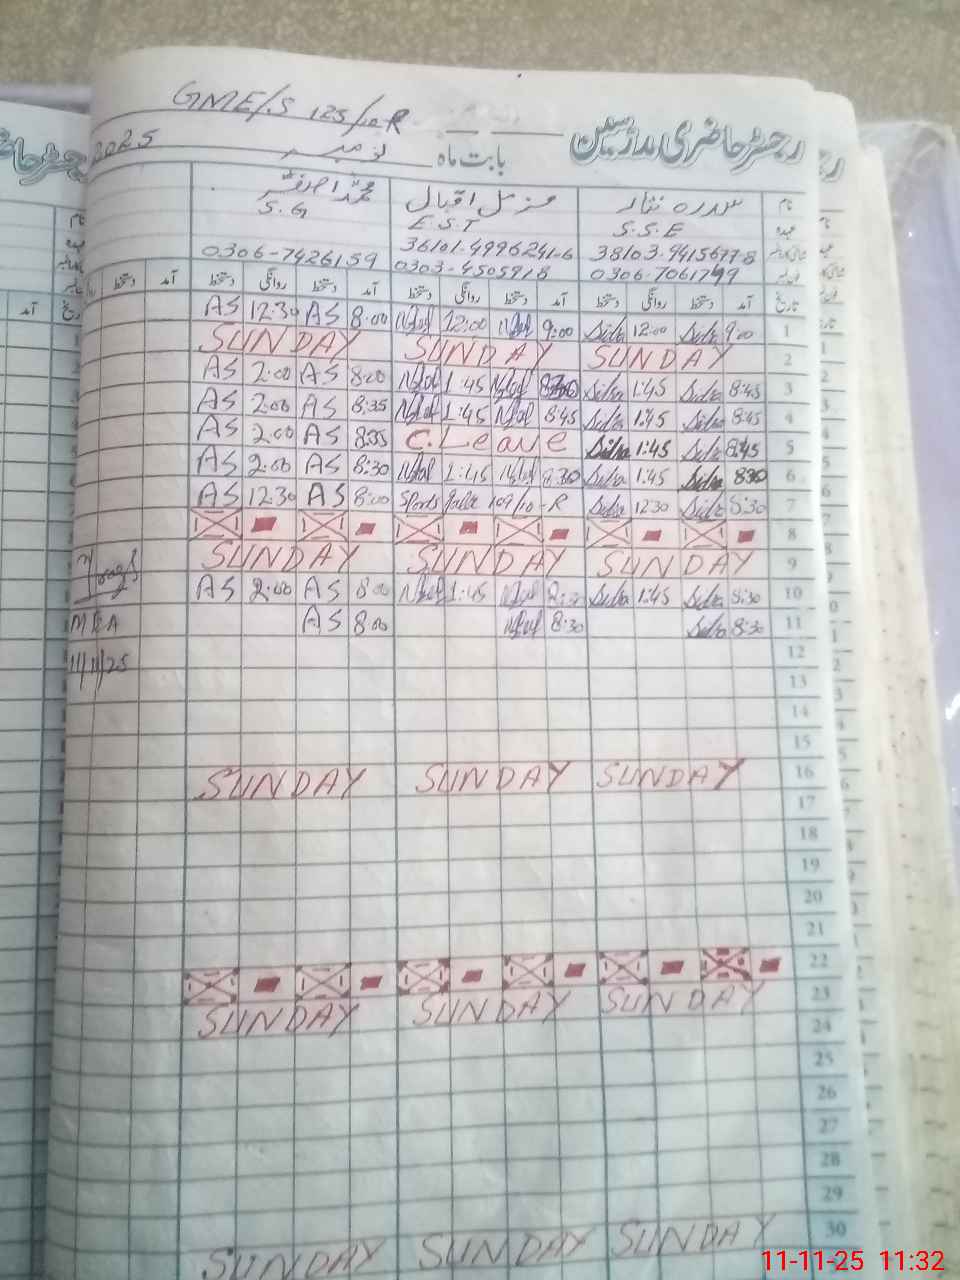 GMES 125/10R
رجسٹر حاضری مدرسین
بابت ماہ نومبر 2025
نام سدرہ نثار مزمل اقبال محمد اصغر
عہدہ S.S.E E.S.T S.G
38103-9415677-8 36101-4996241-6
0306-7061799 0303-4505918 0306-7426159
تاریخ آمد دستخط روانگی دستخط آمد دستخط روانگی دستخط آمد دستخط روانگی دستخط آمد دستخط
AS 12:30 AS 8:00 12:00 9:00 Sidra 12:00 Sidra 9:00 1
SUNDAY SUNDAY SUNDAY 2
AS 2:00 AS 8:00 1:45 Sidra 1:45 Sidra 8:45 3
AS 2:00 AS 8:35 1:45 8:45 Sidra 1:45 Sidra 8:45 4
AS 2:00 AS 8:35 C. Leave Sidra 1:45 Sidra 8:45 5
AS 2:00 AS 8:30 1:45 8:30 Sidra 1:45 Sidra 8:30 6
AS 12:30 AS 8:00 Sports 109/10-R Sidra 12:30 Sidra 8:30 7
8
SUNDAY SUNDAY SUNDAY 9
AS 2:00 AS 8:00 1:45 Sidra 1:45 Sidra 8:30 10
MEA AS 8:00 8:30 Sidra 8:30 11
11/11/25 12
13
14
15
SUNDAY SUNDAY SUNDAY 16
17
18
19
20
21
22
SUNDAY SUNDAY SUNDAY 23
24
25
26
27
28
29
SUNDAY SUNDAY SUNDAY 30
11-11-25 11:32